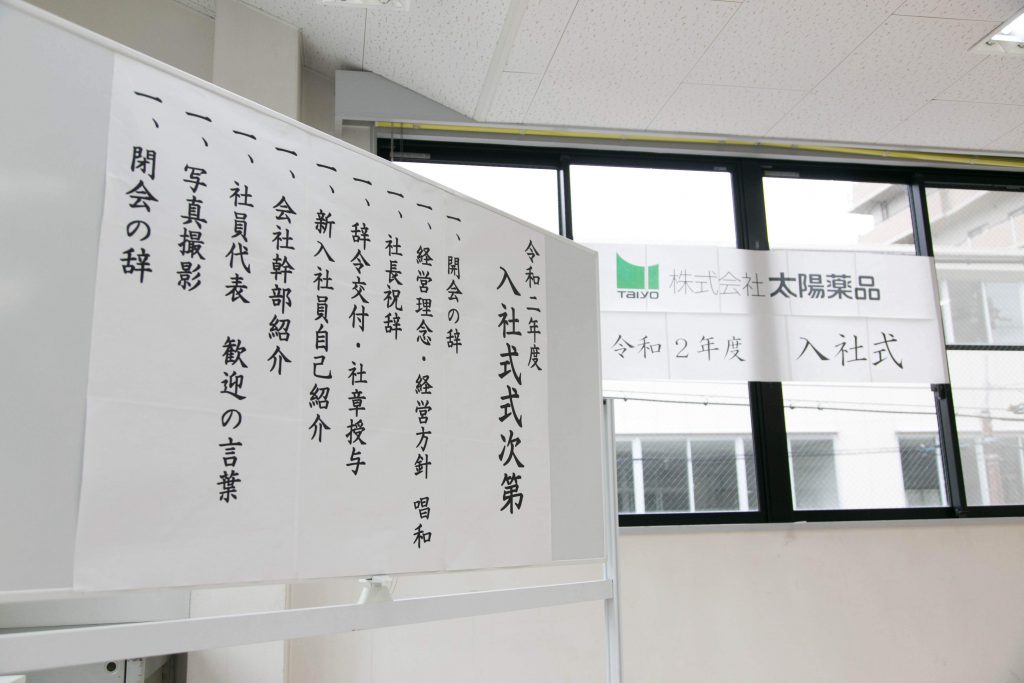 令和二年度
入社式式次第
一、開会の辞
一、経営理念・経営方針 唱和
一、社長祝辞
一、辞令交付・社章授与
一、新入社員自己紹介
一、会社幹部紹介
一、社員代表 歓迎の言葉
一、写真撮影
一、閉会の辞
TAIYO 株式会社 太陽薬品
令和2年度 入社式